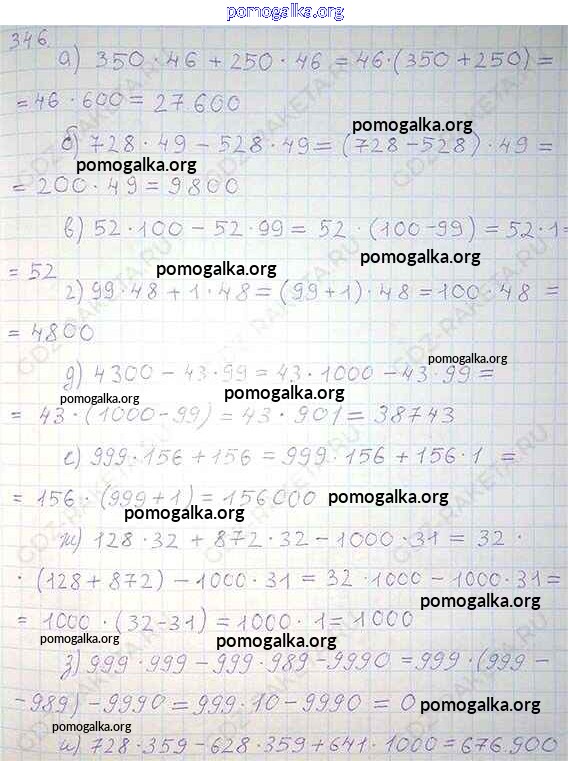 pomogalka.org
346.
а) 350·46 + 250·46 = 46·(350+250) =
= 46·600 = 27.600
pomogalka.org
б) 728·49 − 528·49 = (728−528)·49 =
pomogalka.org
= 200·49 = 9800
в) 52·100 − 52·99 = 52·(100−99) = 52·1=
= 52
pomogalka.org
г) 99·48 + 1·48 = (99+1)·48 = 100·48 =
= 4800
pomogalka.org
д) 4300 − 43·99 = 43·1000 − 43·99 =
pomogalka.org
pomogalka.org
= 43·(1000−99) = 43·901 = 38743
е) 999·156 + 156 = 999·156 + 156·1 =
= 156·(999+1) = 156000
pomogalka.org
pomogalka.org
ж) 128·32 + 872·32 − 1000·31 = 32·
·(128+872) − 1000·31 = 32·1000 − 1000·31 =
pomogalka.org
= 1000·(32−31) = 1000·1 = 1000
pomogalka.org
pomogalka.org
з) 999·999 − 999·989 − 9990 = 999·(999−
−989) − 9990 = 999·10 − 9990 = 0
pomogalka.org
pomogalka.org
и) 728·359 − 628·359 + 641·1000 = 676.900
GDZ-RAKETA.RU